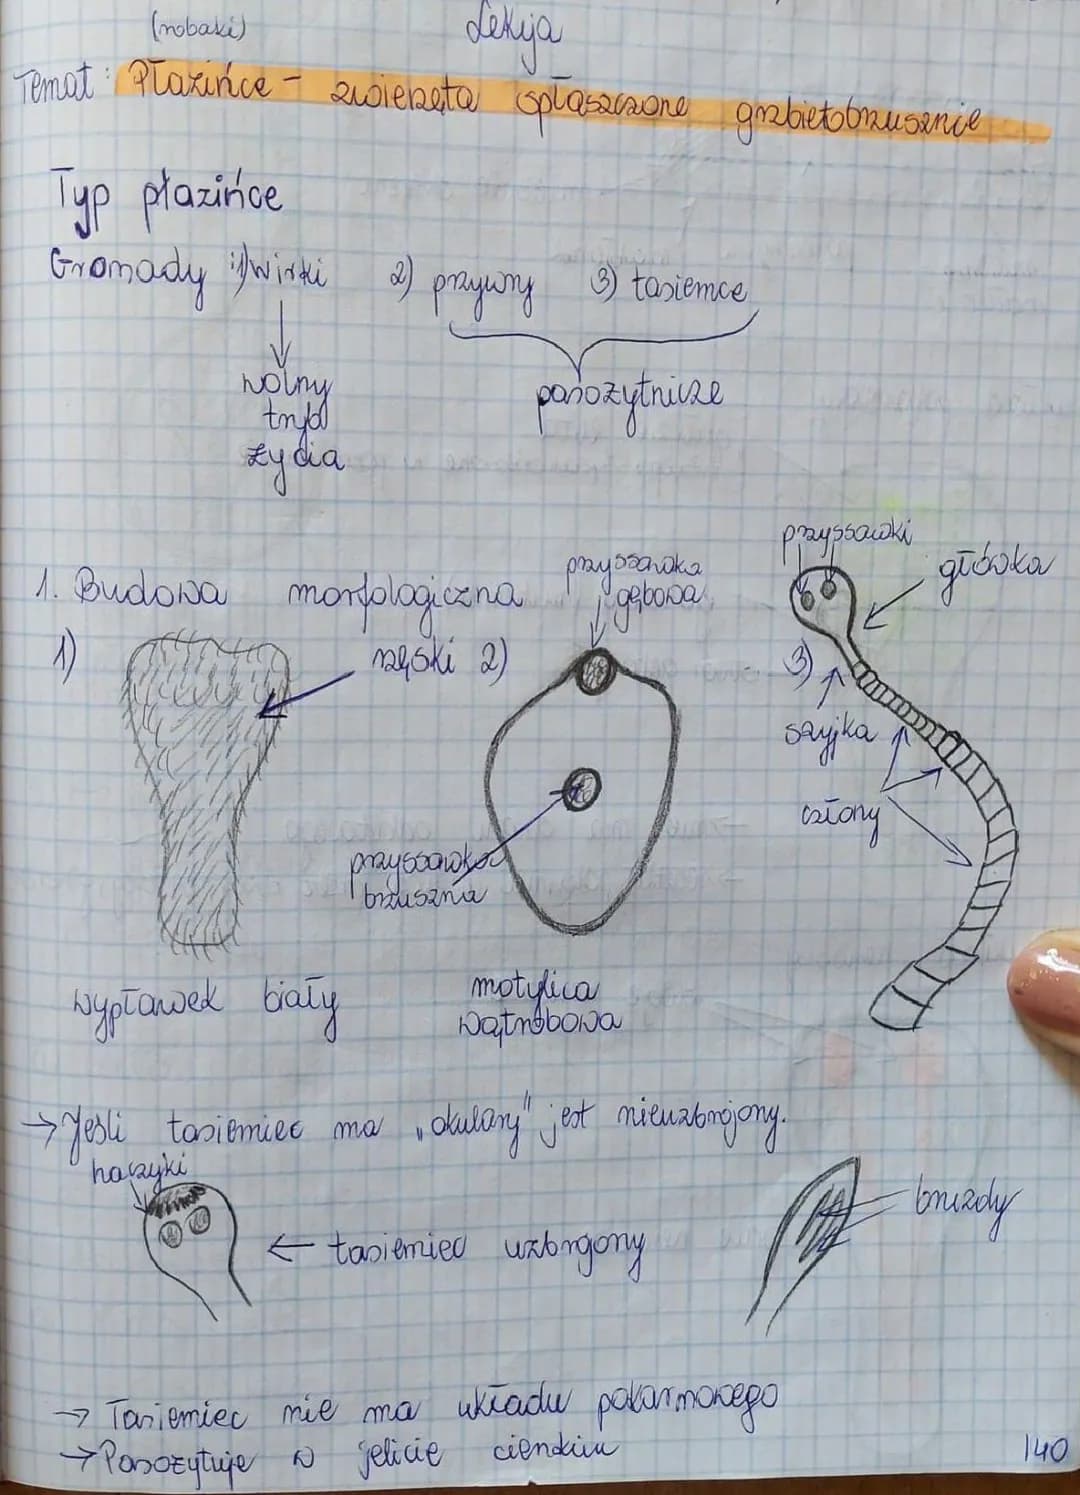 (robaki) Lekcja
Temat: Płazińce - zwierzęta spłaszczone grzbietobrzusznie
Typ płazińce
Gromady : 1) wirki 2) przywry 3) tasiemce
wolny
tryb
życia
pasożytnicze
1. Budowa morfologiczna
1)
rzęski
2)
przyssawka
gębowa
przyssawka
brzuszna
3)
przyssawki
główka
szyjka
człony
wypławek biały
motylica
wątrobowa
→ Jeśli tasiemiec ma „okulary" jest nieuzbrojony.
haczyki
← tasiemiec uzbrojony
bruzdy
→ Tasiemiec nie ma układu pokarmowego
→ Pasożytuje w jelicie cienkim
140